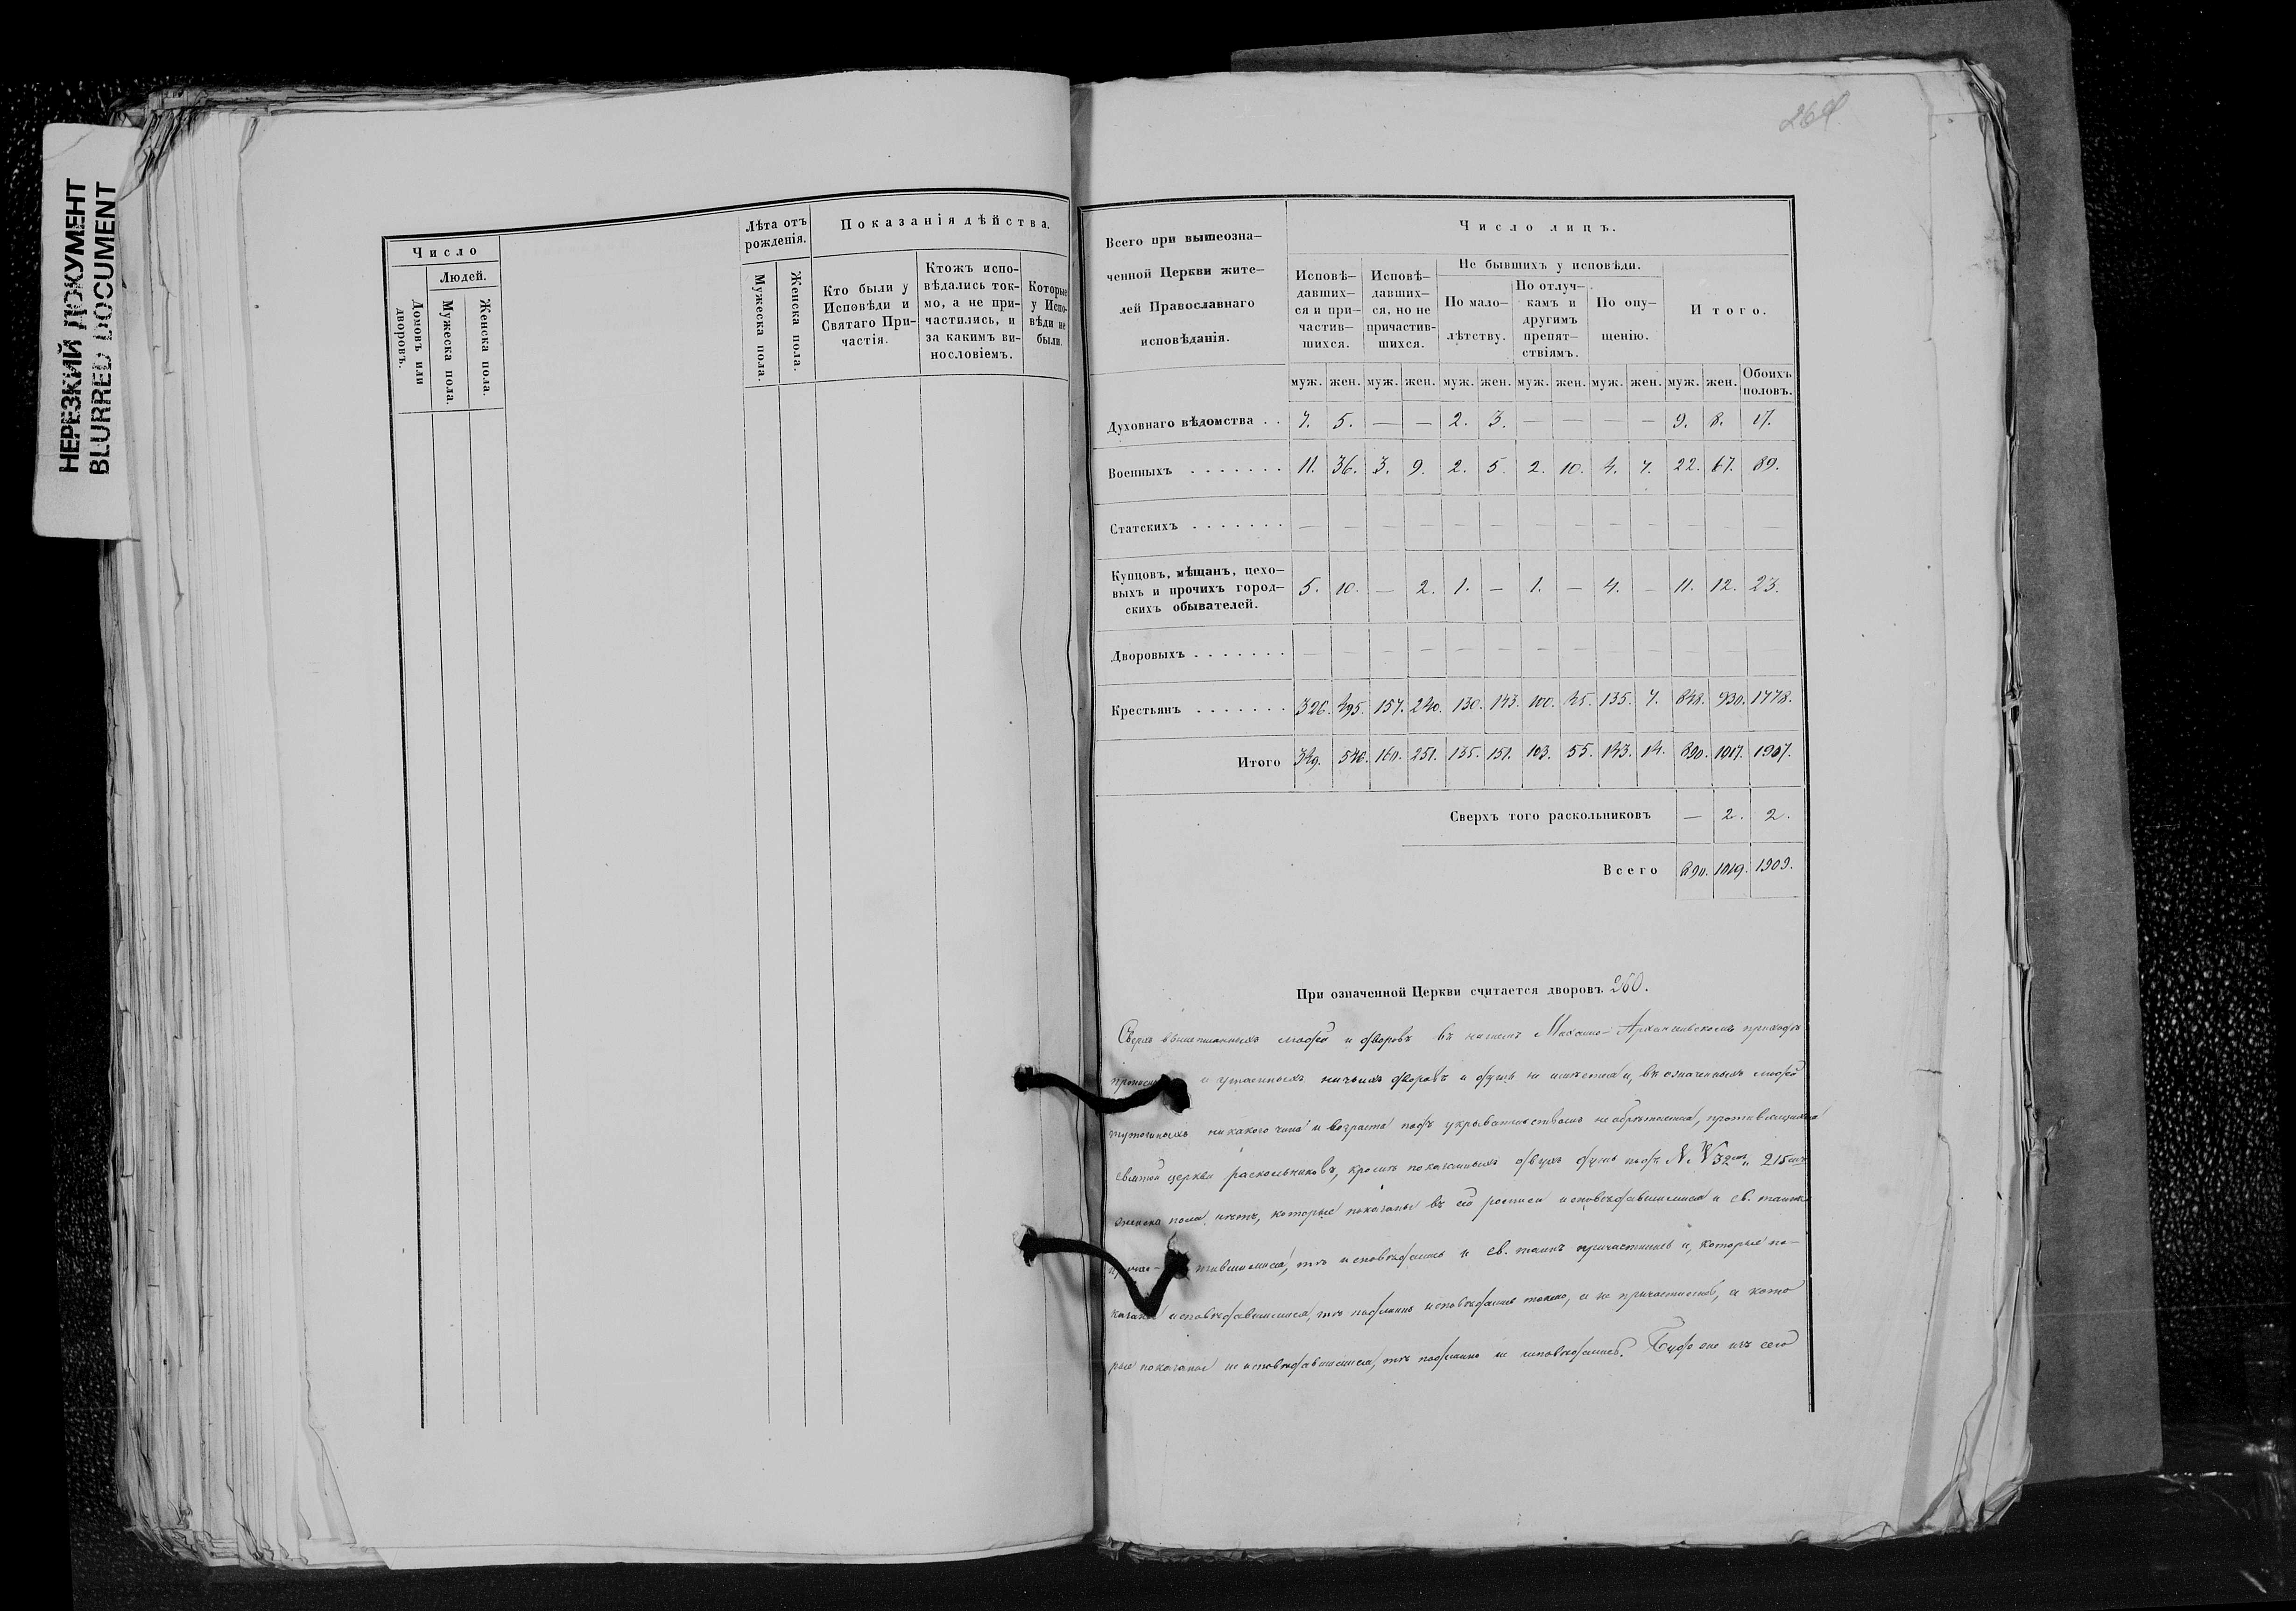 НЕРЕЗКИЙ ДОКУМЕНТ
BLURRED DOCUMENT
Число
Людей.
Домовъ или дворовъ.
Мужеска пола.
Женска пола.
Лѣта отъ рожденія.
Мужеска пола.
Женска пола.
Показанія дѣйства.
Кто были у Исповѣди и Святаго При-частія.
Ктожъ испо-вѣдались ток-мо, а не при-частились, и за какимъ ви-нословіемъ.
Которые у Испо-вѣди не были.
Всего при вышеозна-
ченной Церкви жите-
лей Православнаго
исповѣданія.
Число лицъ.
Исповѣ-давших-ся и при-частив-шихся.
Исповѣ-давших-ся, но не причастив-шихся.
Не бывшихъ у исповѣди.
По мало-лѣтству.
По отлуч-камъ и другимъ препят-ствіямъ.
По опу-щенію.
Итого.
муж. жен. муж. жен. муж. жен. муж. жен. муж. жен. муж. жен. Обоихъ половъ.
Духовнаго вѣдомства . . 7. 5. — — 2. 3. — — — — 9. 8. 17.
Военныхъ . . . . . . . 11. 36. 3. 9. 2. 5. 2. 10. 4. 7. 22. 67. 89.
Статскихъ . . . . . . . — — — — — — — — — — — — —
Купцовъ, мѣщанъ, цехо-
выхъ и прочихъ город- 5. 10. — 2. 1. — 1. — 4. — 11. 12. 23.
скихъ обывателей.
Дворовыхъ . . . . . . . — — — — — — — — — — — — —
Крестьянъ . . . . . . . 326. 495. 157. 240. 130. 143. 100. 45. 135. 7. 848. 930. 1778.
Итого 349. 546. 160. 251. 135. 151. 103. 55. 143. 14. 890. 1017. 1907.
Сверхъ того раскольниковъ — 2. 2.
Всего 890. 1019. 1909.
При означенной Церкви считается дворовъ 260.
Сверхъ вышеписанныхъ людей и дворовъ въ нашемъ Михаило-Архангельскомъ приходѣ
и утаенныхъ ничьихъ дворовъ и душъ не имѣется и, въ означенныхъ людей
никакого чина и возраста подъ укрывательствомъ не обрѣтается, противящихся
святой церкви раскольниковъ, кромѣ показанныхъ двухъ душъ подъ № № 32 215
женска пола нѣтъ, которые показаны въ сей росписи исповѣдавшимися и св. таинъ
причас-тившимися, тѣ исповѣдались и св. таинъ причастились и, которые по-
казаны исповѣдавшимися, тѣ подлинно исповѣдались токмо, а не причастились, а кото
рые показаны не исповѣдавшимися, тѣ подлинно не исповѣдались. Буде же изъ сего